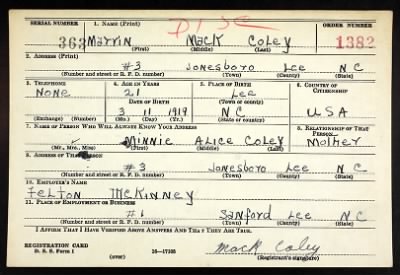 SERIAL NUMBER 1. NAME (Print) ORDER NUMBER
DISC
363 Marvin Mack Coley 1382
(First) (Middle) (Last)
2. ADDRESS (Print)
#3 Jonesboro Lee N C
(Number and street or R. F. D. number) (Town) (County) (State)
3. TELEPHONE 4. AGE IN YEARS 5. PLACE OF BIRTH 6. COUNTRY OF CITIZENSHIP
None 21 Lee
DATE OF BIRTH (Town or county)
3 11 1919 N C USA
(Exchange) (Number) (Mo.) (Day) (Yr.) (State or country)
7. NAME OF PERSON WHO WILL ALWAYS KNOW YOUR ADDRESS 8. RELATIONSHIP OF THAT PERSON
Minnie Alice Coley Mother
(Mr., Mrs., Miss) (First) (Middle) (Last)
9. ADDRESS OF THAT PERSON
#3 Jonesboro Lee N C
(Number and street or R. F. D. number) (Town) (County) (State)
10. EMPLOYER'S NAME
Felton McKinney
11. PLACE OF EMPLOYMENT OR BUSINESS
#1 Sanford Lee N C
(Number and street or R. F. D. number) (Town) (County) (State)
I AFFIRM THAT I HAVE VERIFIED ABOVE ANSWERS AND THAT THEY ARE TRUE.
REGISTRATION CARD
D. S. S. Form 1 (over) 16—17105 Mack Coley
(Registrant's signature)